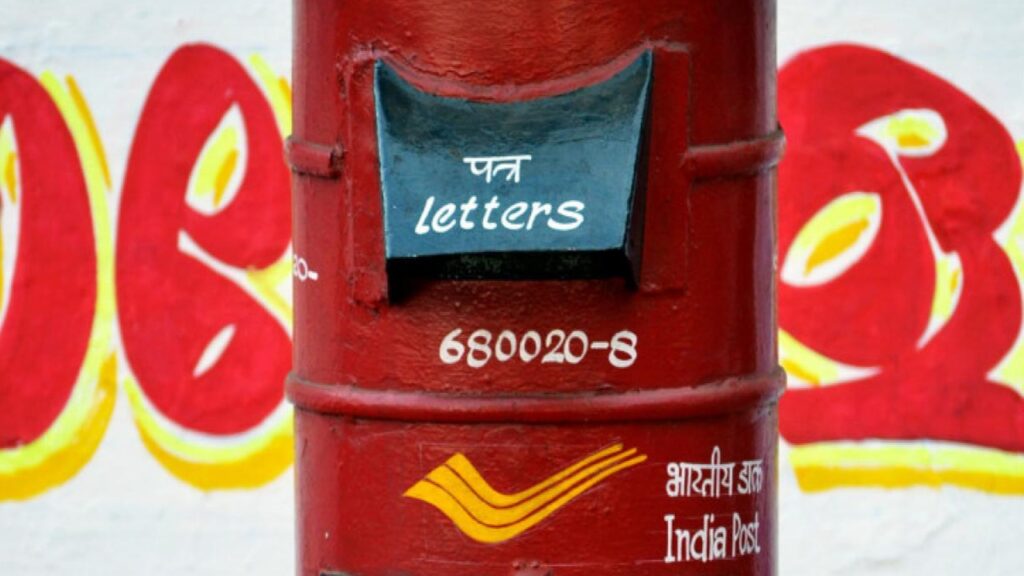 पत्र
Letters
680020-8
भारतीय डाक
India Post